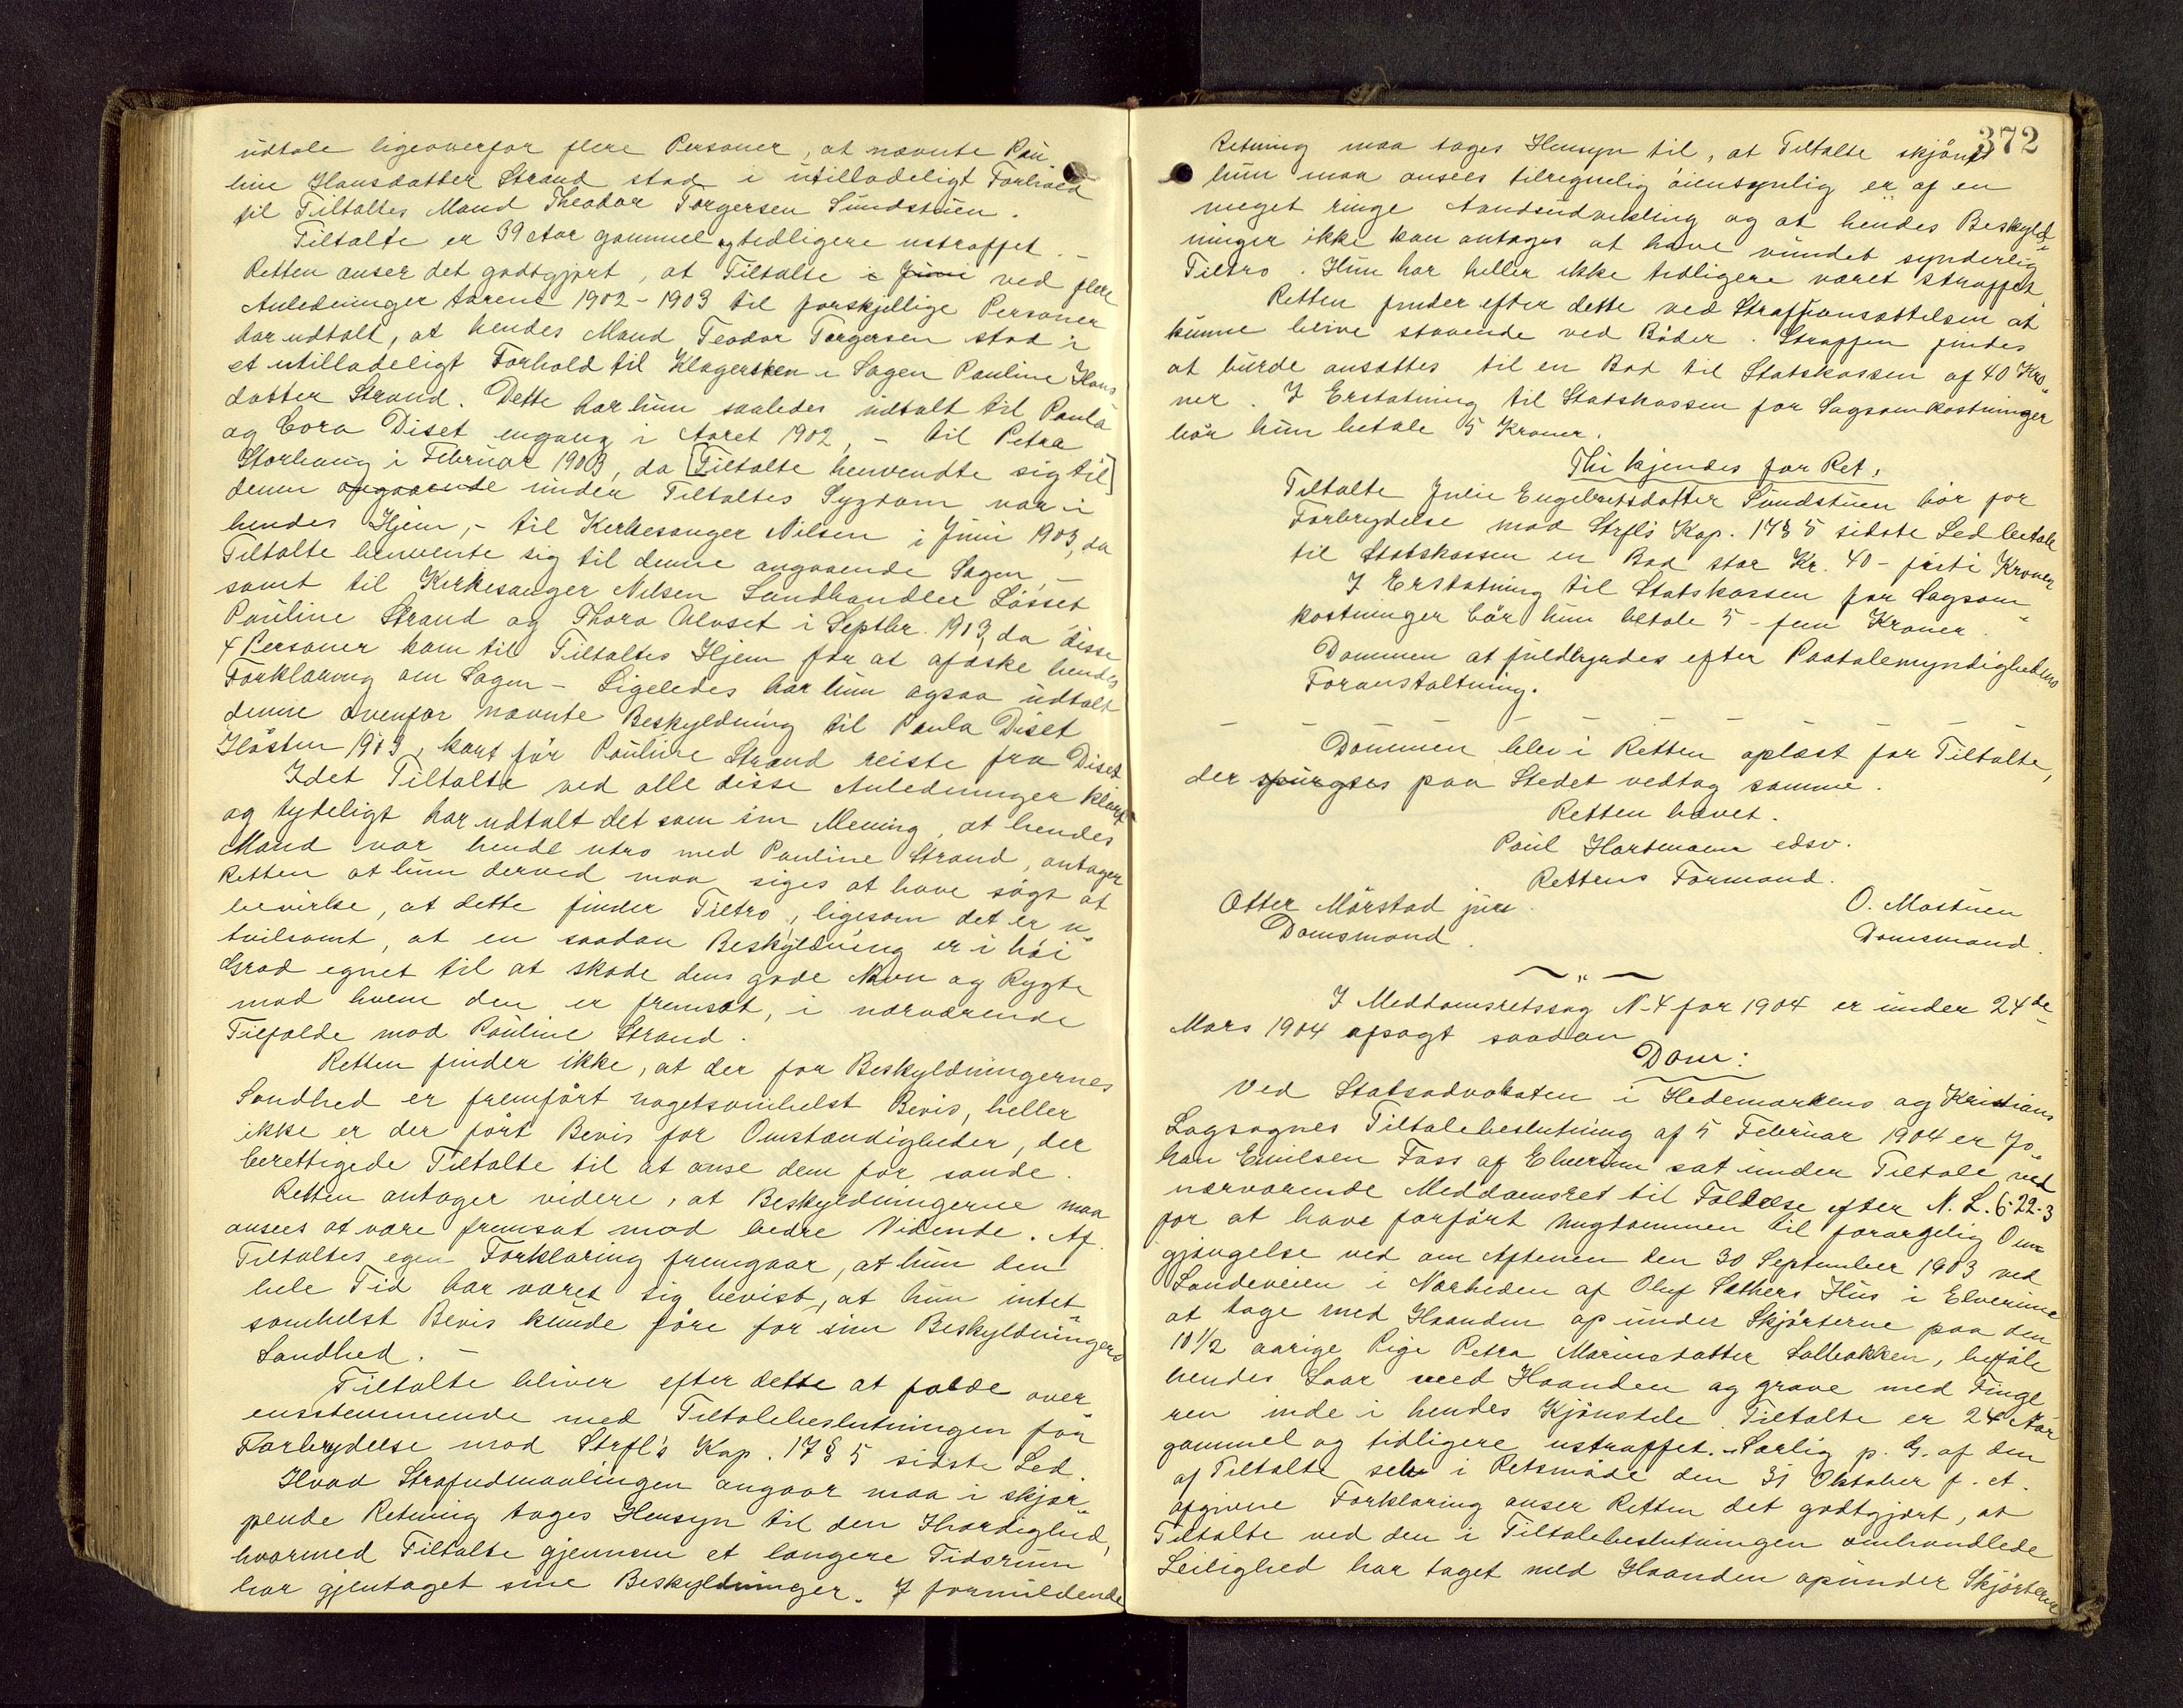 udtale ligeoverfor flere Personer, at nævnte Pau-
line Hansdatter Strand stod i utilladeligt Forhold
til Tiltaltes Mand Theodor Torgersen Sundstuen.
Tiltalte er 39 Aar gammel og tidligere ustraffet. —
Retten anser det godtgjort, at Tiltalte i Juni ved flere
Anledninger Aarene 1902-1903 til forskjellige Personer
har udtalt, at hendes Mand Teodor Torgersen stod i
et utilladeligt Forhold til Klagersken i Sagen Pauline Hans
datter Strand. Dette har hun saaledes udtalt til Paula
og Cora Diset engang i Aaret 1902, - til Petra
Storhaug i Februar 1903, da [Tiltalte henvendte sig til]
denne angaaende under Tiltaltes Sygdom var i
hendes Hjem, - til Kirkesanger Nilsen i Juni 1903, da
Tiltalte henvente sig til denne angaaende Sagen, —
samt til Kirkesanger Nilsen Landhandler Løsset
Pauline Strand og Thora Alvset i Septbr. 1903, da disse
4 Personer kom til Tiltaltes Hjem for at afæske hendes
Forklaring om Sagen - Ligeledes har hun ogsaa udtalt
denne ovenfor nævnte Beskyldning til Paula Diset
Høsten 1903, kort før Pauline Strand reiste fra Diset
Idet Tiltalte ved alle disse Anledninger klart
og tydeligt har udtalt det som sin Mening, at hendes
Mand var hende utro med Pauline Strand, antager
Retten at hun derved maa siges at have søgt at
bevirke, at dette finder Tiltro, ligesom det er u-
tvilsomt, at en saadan Beskyldning er i høi
Grad egnet til at skade dens gode Navn og Rygte
mod hvem den er fremsat, i nærværende
Tilfælde mod Pauline Strand.
Retten finder ikke, at der for Beskyldningernes
Sandhed er fremført nogetsomhelst Bevis, heller
ikke er der ført Bevis for Omstændigheder, der
berettigede Tiltalte til at anse dem for sande.
Retten antager videre, at Beskyldningerne maa
ansees at være fremsat mod bedre Vidende. Af
Tiltaltes egen Forklaring fremgaar, at hun den
hele Tid har været sig bevist, at hun intet
somhelst Bevis kunde føre for sin Beskyldnings
Sandhed. —
Tiltalte bliver efter dette at fælde over
ensstemmende med Tiltalebeslutningen for
Forbrydelse mod Strfl's Kap. 17 § 5 sidste Led.
Hvad Strafudmaalingen angaar maa i skjær-
pende Retning tages Hensyn til den Ihærdighed,
hvormed Tiltalte gjennem et længere Tidsrum
har gjentaget sine Beskyldninger. I formildende
372
Retning maa tages Hensyn til, at Tiltalte skjønt
hun maa ansees tilregnelig øiensynlig er af en
meget ringe Aandsudvikling og at hendes Beskyld-
ninger ikke kan antages at have vundet synderlig
Tiltro. Hun har heller ikke tidligere været straffet.
Retten finder efter dette ved Straffansættelsen at
kunne blive staaende ved Bøder. Straffen findes
at burde ansættes til en Bod til Statskassen af 40 Kro-
ner. I Erstatning til Statskassen for Sagsomkostninger
bør hun betale 5 Kroner.
Thi kjendes for Ret:
Tiltalte Julie Engebretsdatter Sundstuen bør for
Forbrydelse mod Strfl's Kap. 17 § 5 sidste Led betale
til Statskassen en Bod stor Kr. 40 - firti Kroner
I Erstatning til Statskassen for Sagsom-
kostninger bør hun betale 5 - fem Kroner.
Dommen at fuldbyrdes efter Paatalemyndighedens
Foranstaltning.
Dommen blev i Retten oplæst for Tiltalte,
der spurgtes paa Stedet vedtog samme.
Retten hævet.
Paul Hartmann edsv.
Rettens Formand.
Otter Mørstad jun. O. Mostuen
Domsmand. Domsmand.
I Meddomsretssag N. 4 for 1904 er under 24de
Mars 1904 afsagt saadan
Dom:
Ved Statsadvokaten i Hedemarkens og Kristians
Lagsognes Tiltalebeslutning af 5 Februar 1904 er Jo-
han Emilsen Foss af Elverum sat under Tiltale ved
nærværende Meddomsret til Fældelse efter N. L. 6-22-3
for at have forført Ungdommen til forargelig Om
gjængelse ved om Aftenen den 30 September 1903 ved
Landeveien i Nærheden af Oluf Sæthers Hus i Elverum
at tage med Haanden op under Skjørterne paa den
10 1/2 aarige Pige Petra Marinsdatter Solbakken, beføle
hendes Laar med Haanden og grave med Finge
ren inde i hendes Kjønsdele. Tiltalte er 24 Aar
gammel og tidligere ustraffet. - Særlig p. G. af den
af Tiltalte selv i Retsmøde den 31 Oktober f. A.
afgivne Forklaring anser Retten det godtgjort, at
Tiltalte ved den i Tiltalebeslutningen omhandlede
Leilighed har taget med Haanden opunder Skjørterne